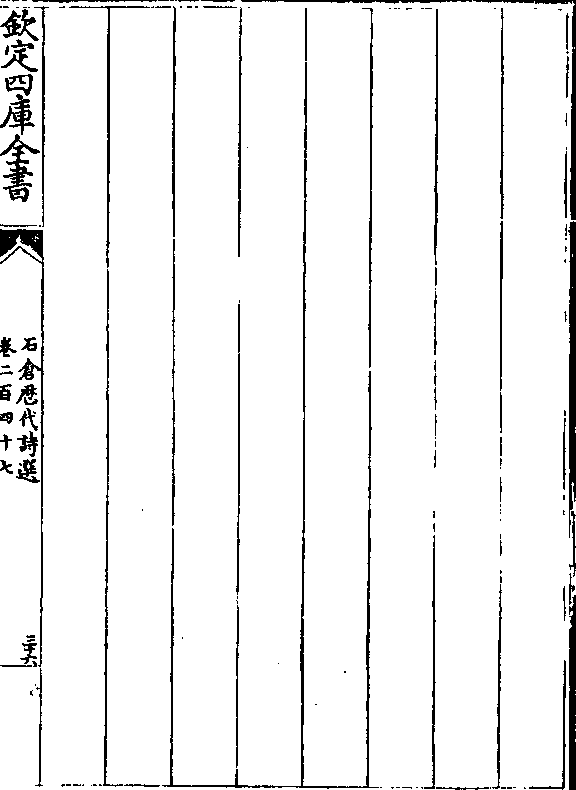 欽定四庫全書
石倉歷代詩選
卷二百四十七
三十六